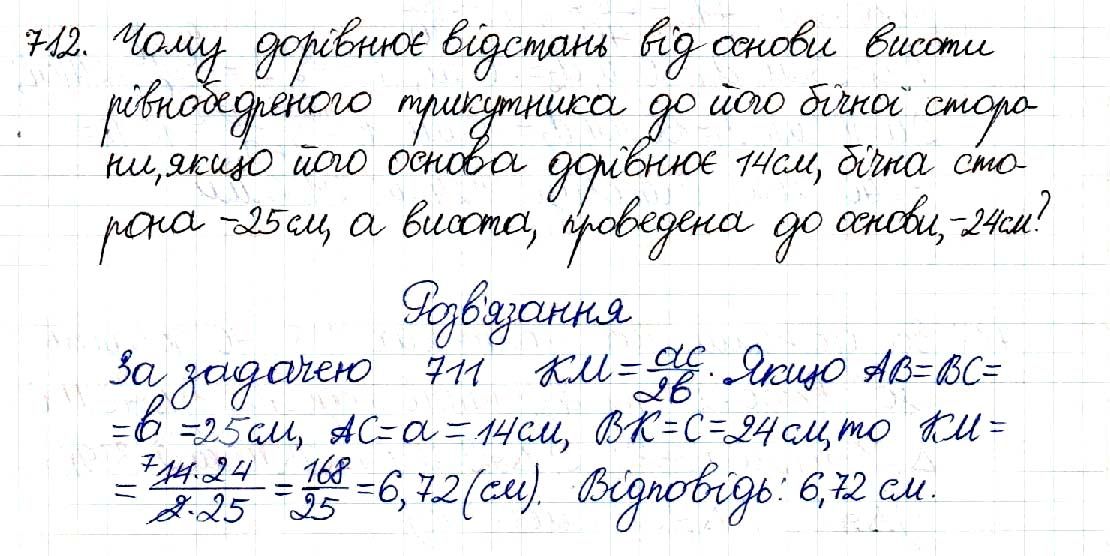 712. Чому дорівнює відстань від основи висоти
рівнобедреного трикутника до його бічної сторо-
ни, якщо його основа дорівнює 14 см, бічна сто-
рона - 25 см, а висота, проведена до основи, - 24 см?
Розв'язання
За задачею 711 КМ = ac/2b. Якщо АВ = ВС =
= b = 25 см, АС = a = 14 см, ВК = c = 24 см, то КМ =
= 7 14·24/2·25 = 168/25 = 6,72 (см). Відповідь: 6,72 см.